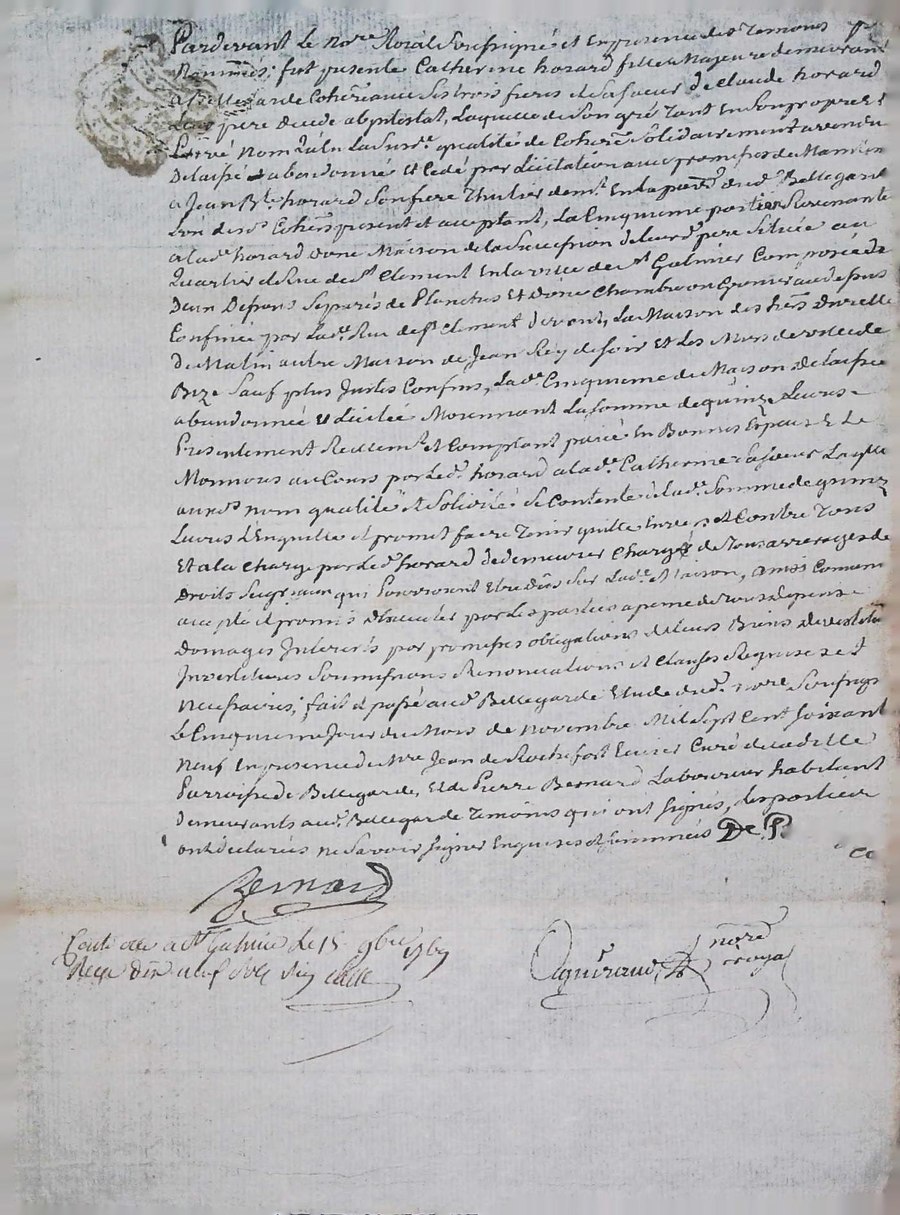 Pardevant Le nore Roial Soussigné et En presence des Temoins
Nommés; fut presente Catherine horard fille Majeure demeurant
a Bellegarde Coheritiere Ses trois freres et Sa Soeur de Claude horard
Leur pere decedé abintestat, Laquelle de Son gré Tant En Son propre et
privé Nom qu'En La Susde qualité de Coherre Solidairement a vendu
Delaissé abandonné et Cedé par Licitation avec promesses de Maintenir
a Jean Bte horard Son frere Thulier demt En la parse dud. Bellegarde
L'un desd. Coherrs present et acceptant, La Cinquieme portion Parvenante
a lade horard d'une Maison de la Succession de leurd. pere Située au
Quartier et Rue de St Clement En la ville de St Galmier Composée de
deux Separés de Planches Et d'une Chambre ou Grenier au dessus
Confinée par Lade Rue de St Clement devent, La Maison des hers
de Matin autre Maison de Jean Rey de Soir Et Les Murs de ville de
Bize Sauf plus Justes Confins, Lade Cinquieme de Maison delaissée
abandonnée et Licitée Moiennant La Somme de quinze Livres
Presentement Reellemt et Comptant paiée En Bonnes Especes Et de
Monnoie au Cours par Led. horard a lade Catherine Sa Soeur Laqlle
auxds nom qualité et Solidité Se Contente de lade Somme de quinze
Livres L'En quitte et promet faire Tenir quitte Envers et Contre Tous
Et a la Charge par Led. horard de demeurer Chargé de Tous arrerages de
Droits Seigneuriaux qui Pourroient Etre dûs Sur Lade Maison, ainsi Convenu
accepté et promis d'Executer par Les parties a peine de Tous depens
Domages Interets par promesses obligations de Leurs Biens
Soumissions Renonciations et Clauses Requises et
Necessaires; fait et passé aud. Bellegarde Etude dud. nore Soussigné
Le Cinquieme Jour du Mois de Novembre Mil Sept Cent Soixante
Neuf En presence de Mre Jean de Rochefort Ecuier Curé de la dte
Parroisse de Bellegarde, Et de Pierre Bernard Laboureur habitant
demeurants aud. Bellegarde Temoins qui ont Signés, Les parties
ont declarées ne Savoir Signer Enquises et Sommées De P.
Bernard
Controllé a St Galmier Le 15 9bre 1769
Reçu
nore
royal